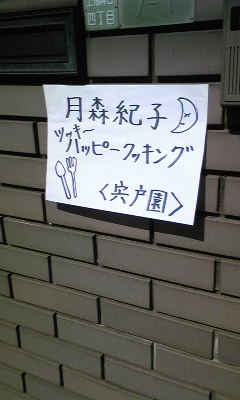 四丁目
月森紀子
ツッキー
ハッピークッキング
＜宍戸園＞